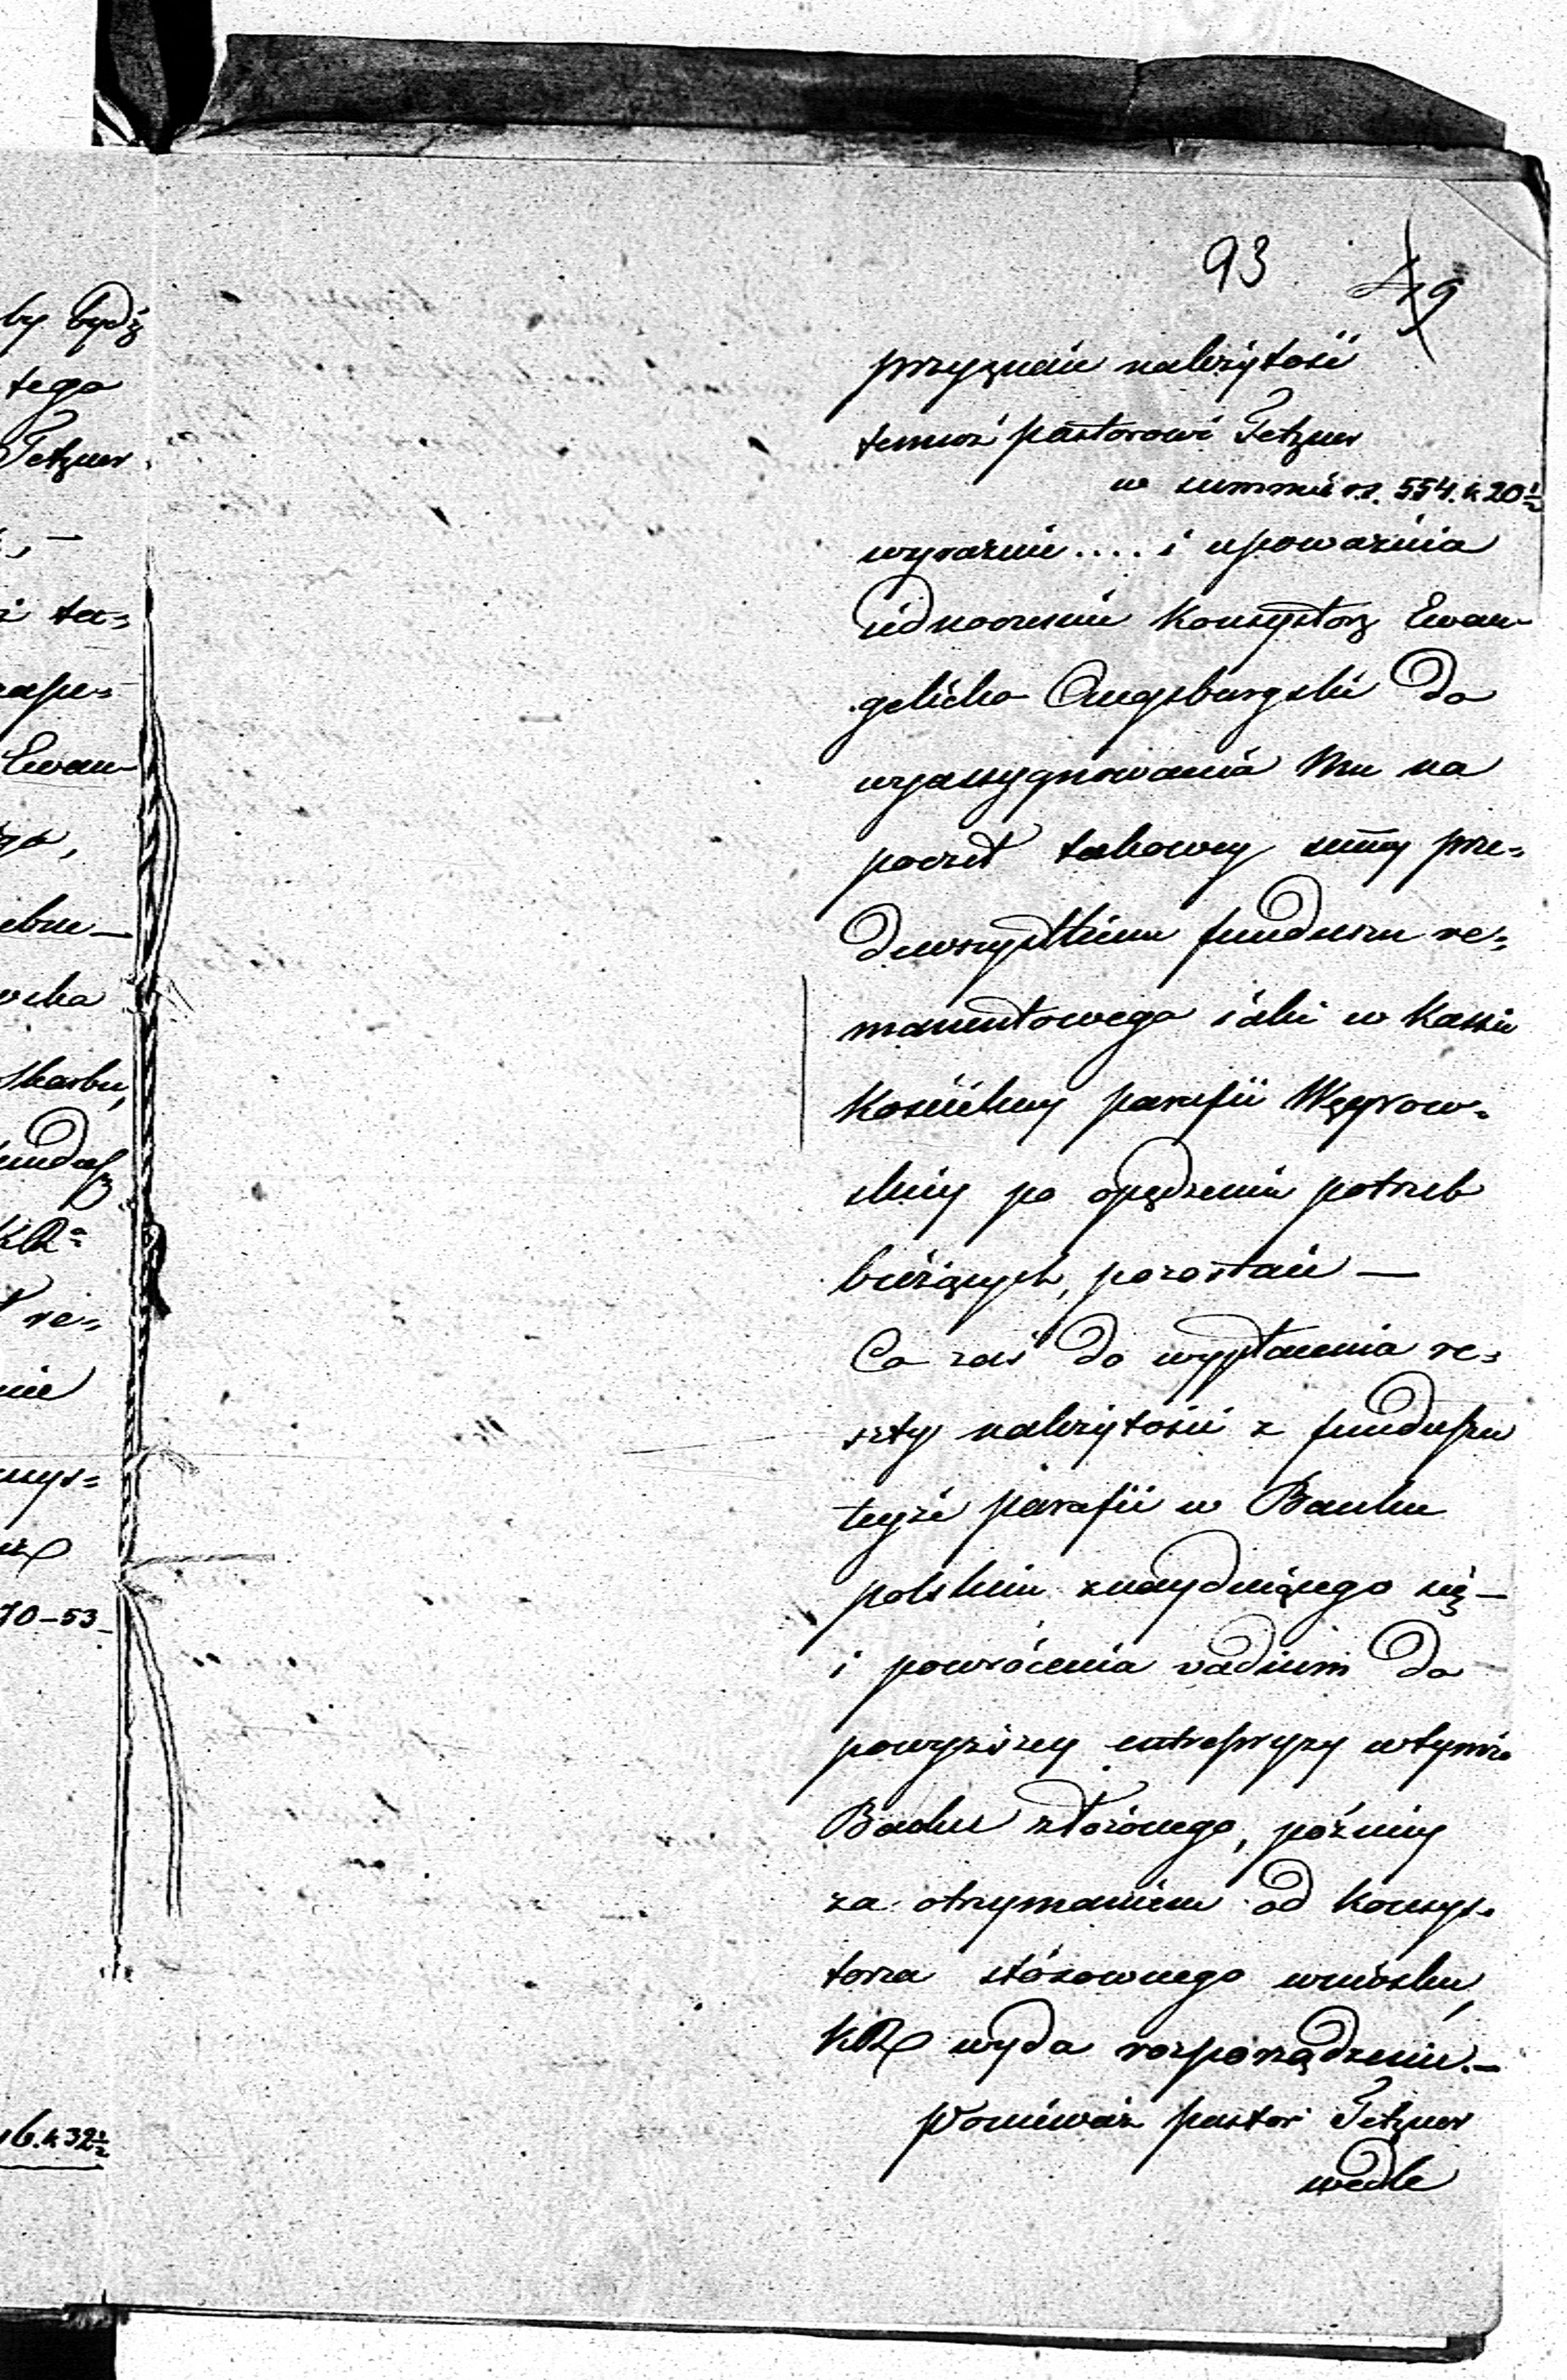 by bydź
tego
Tetzner
i ta=
Ewan-
skarbu,
fundusz
KR=
re=
10-53
k 32½
93
49
przyznaie należytość
temuż pastorowi Tetzner
w summie rs. 554. k 20½
wyraźnie.... i upoważnia
iednocześnie Konsystorz Ewan-
gelicko Augsburgski do
wyassygnowania Mu na
poczet takowey summy prze=
dewszystkiem funduszu re=
manentowego iaki w Kassie
Kościelney parafii Węgrow=
skiey po opędzeniu potrzeb
bieżących, pozostaie —
Co zaś do wypłacenia re=
szty należytości z funduszu
teyże parafii w Banku
polskim znayduiącego się —
i powrócenia vadium do
powyższey entrepryzy w tymże
Banku złożonego, późniey
za otrzymaniem od Konsys=
torza stósownego wniosku,
KR wyda rozporządzenie. —
Ponieważ pastor Tetzner
wedle